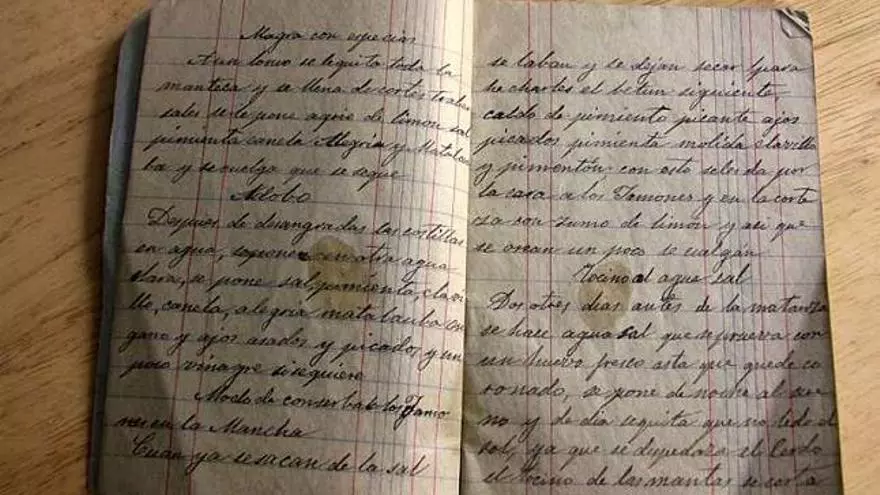 Magra con especias
A un lomo se le quita toda la
manteca y se llena de cortes trabe
sales se le pone agrio de limon sal
pimienta canela Alegria y Matalau
ba y se cuelga que se seque
Adobo
Despues de desangradas las costillas
en agua, se ponen en otra agua
clara, se pone sal, pimienta, clavi
llo, canela, alegria matalauba ore
gano y ajos asados y picados y un
poco vinagre si se quiere
Modo de conserbar los Jamo
nes en la Mancha
Cuan ya se sacan de la sal
se laban y se dejan secar para
hecharles el betun siguiente,
caldo de pimiento picante ajos
picados pimienta molida clavillo
y pimentón con esto se les da por
la cara a los Jamones y en la corte
za con zumo de limón y asi que
se orean un poco se cuelgán
Tocino al agua sal
Dos o tres dias antes de la matanza
se hace agua sal que se prueva con
un huevo fresco asta que quede co
ronado, se pone de noche al sere
no y de dia se quita que no le de el
sol, ya que se depedaza el Cerdo
el tocino de las mantas se corta